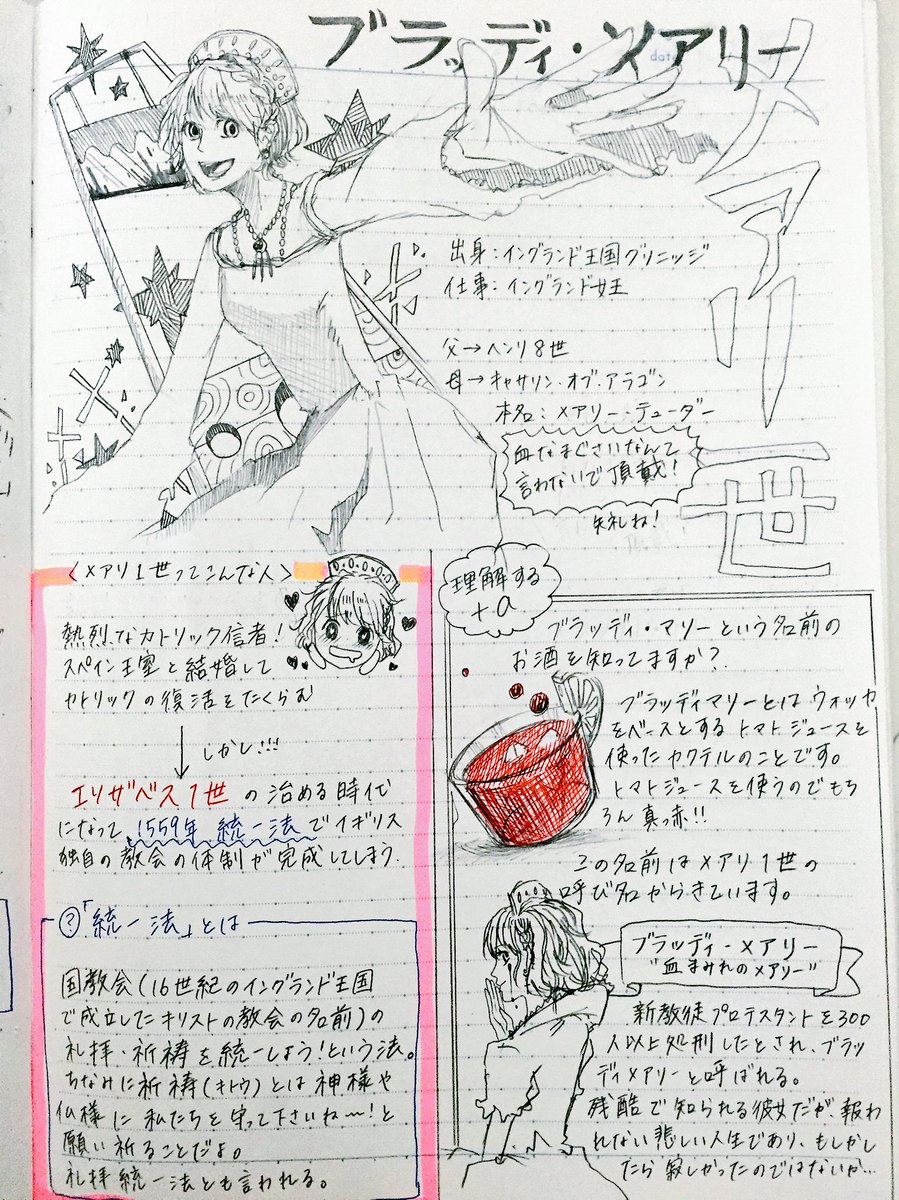 ブラッディ・メアリー
メアリ一世
出身：イングランド王国グリニッジ
仕事：イングランド女王
父→ヘンリ8世
母→キャサリン・オブ・アラゴン
本名：メアリー・テューダー
血なまぐさいなんて
言わないで頂戴！
失礼ね！
〈メアリ1世ってこんな人〉
熱烈なカトリック信者！
スペイン王室と結婚して
カトリックの復活をたくらむ
しかし!!!
エリザベス1世の治める時代
になって、1559年 統一法でイギリス
独自の教会の体制が完成してしまう.
?「統一法」とは
国教会(16世紀のイングランド王国
で成立したキリストの教会の名前)の
礼拝・祈祷を統一しよう！という法。
ちなみに祈祷(キトウ)とは神様や
仏様に私たちを守って下さいね〜！と
願い祈ることだよ。
礼拝統一法とも言われる。
理解する
+α
ブラッディ・マリーという名前の
お酒を知ってますか？
ブラッディマリーとはウォッカ
をベースとするトマトジュースを
使ったカクテルのことです。
トマトジュースを使うのでもち
ろん真っ赤!!
この名前はメアリ1世の
呼び名からきています。
ブラッディ・メアリー
"血まみれのメアリー"
新教徒プロテスタントを300
人以上処刑したとされ、ブラッ
ディメアリーと呼ばれる。
残酷で知られる彼女だが、報わ
れない悲しい人生であり、もしかし
たら寂しかったのではないか…